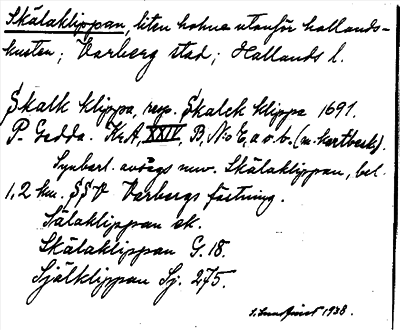 Skälaklippan, liten holme utanför hallands-
kusten; Varberg stad; Hallands l.
Skalk klippa, resp. Skalck klippe 1691.
P. Gedda. KrA, XXIV, B, N:o E, a o. b. (m. kartbeskr).
Synbarl. avses nuv. Skälaklippan, bel.
1,2 km. SSV Varbergs fästning.
Sälaklippan ek.
Skälaklippan G. 18.
Själklippan Sj. 275.
1938.